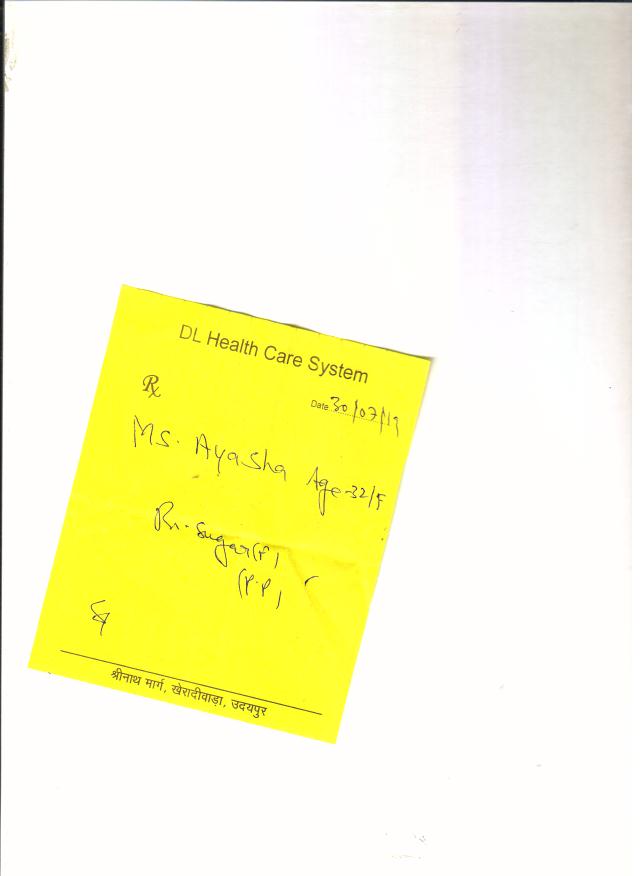 DL Health Care System
℞
Date 30/07/19
Ms. Ayasha Age-32/F
Rx. Sugar (F)
(P.P)
श्रीनाथ मार्ग, खेरादीवाड़ा, उदयपुर